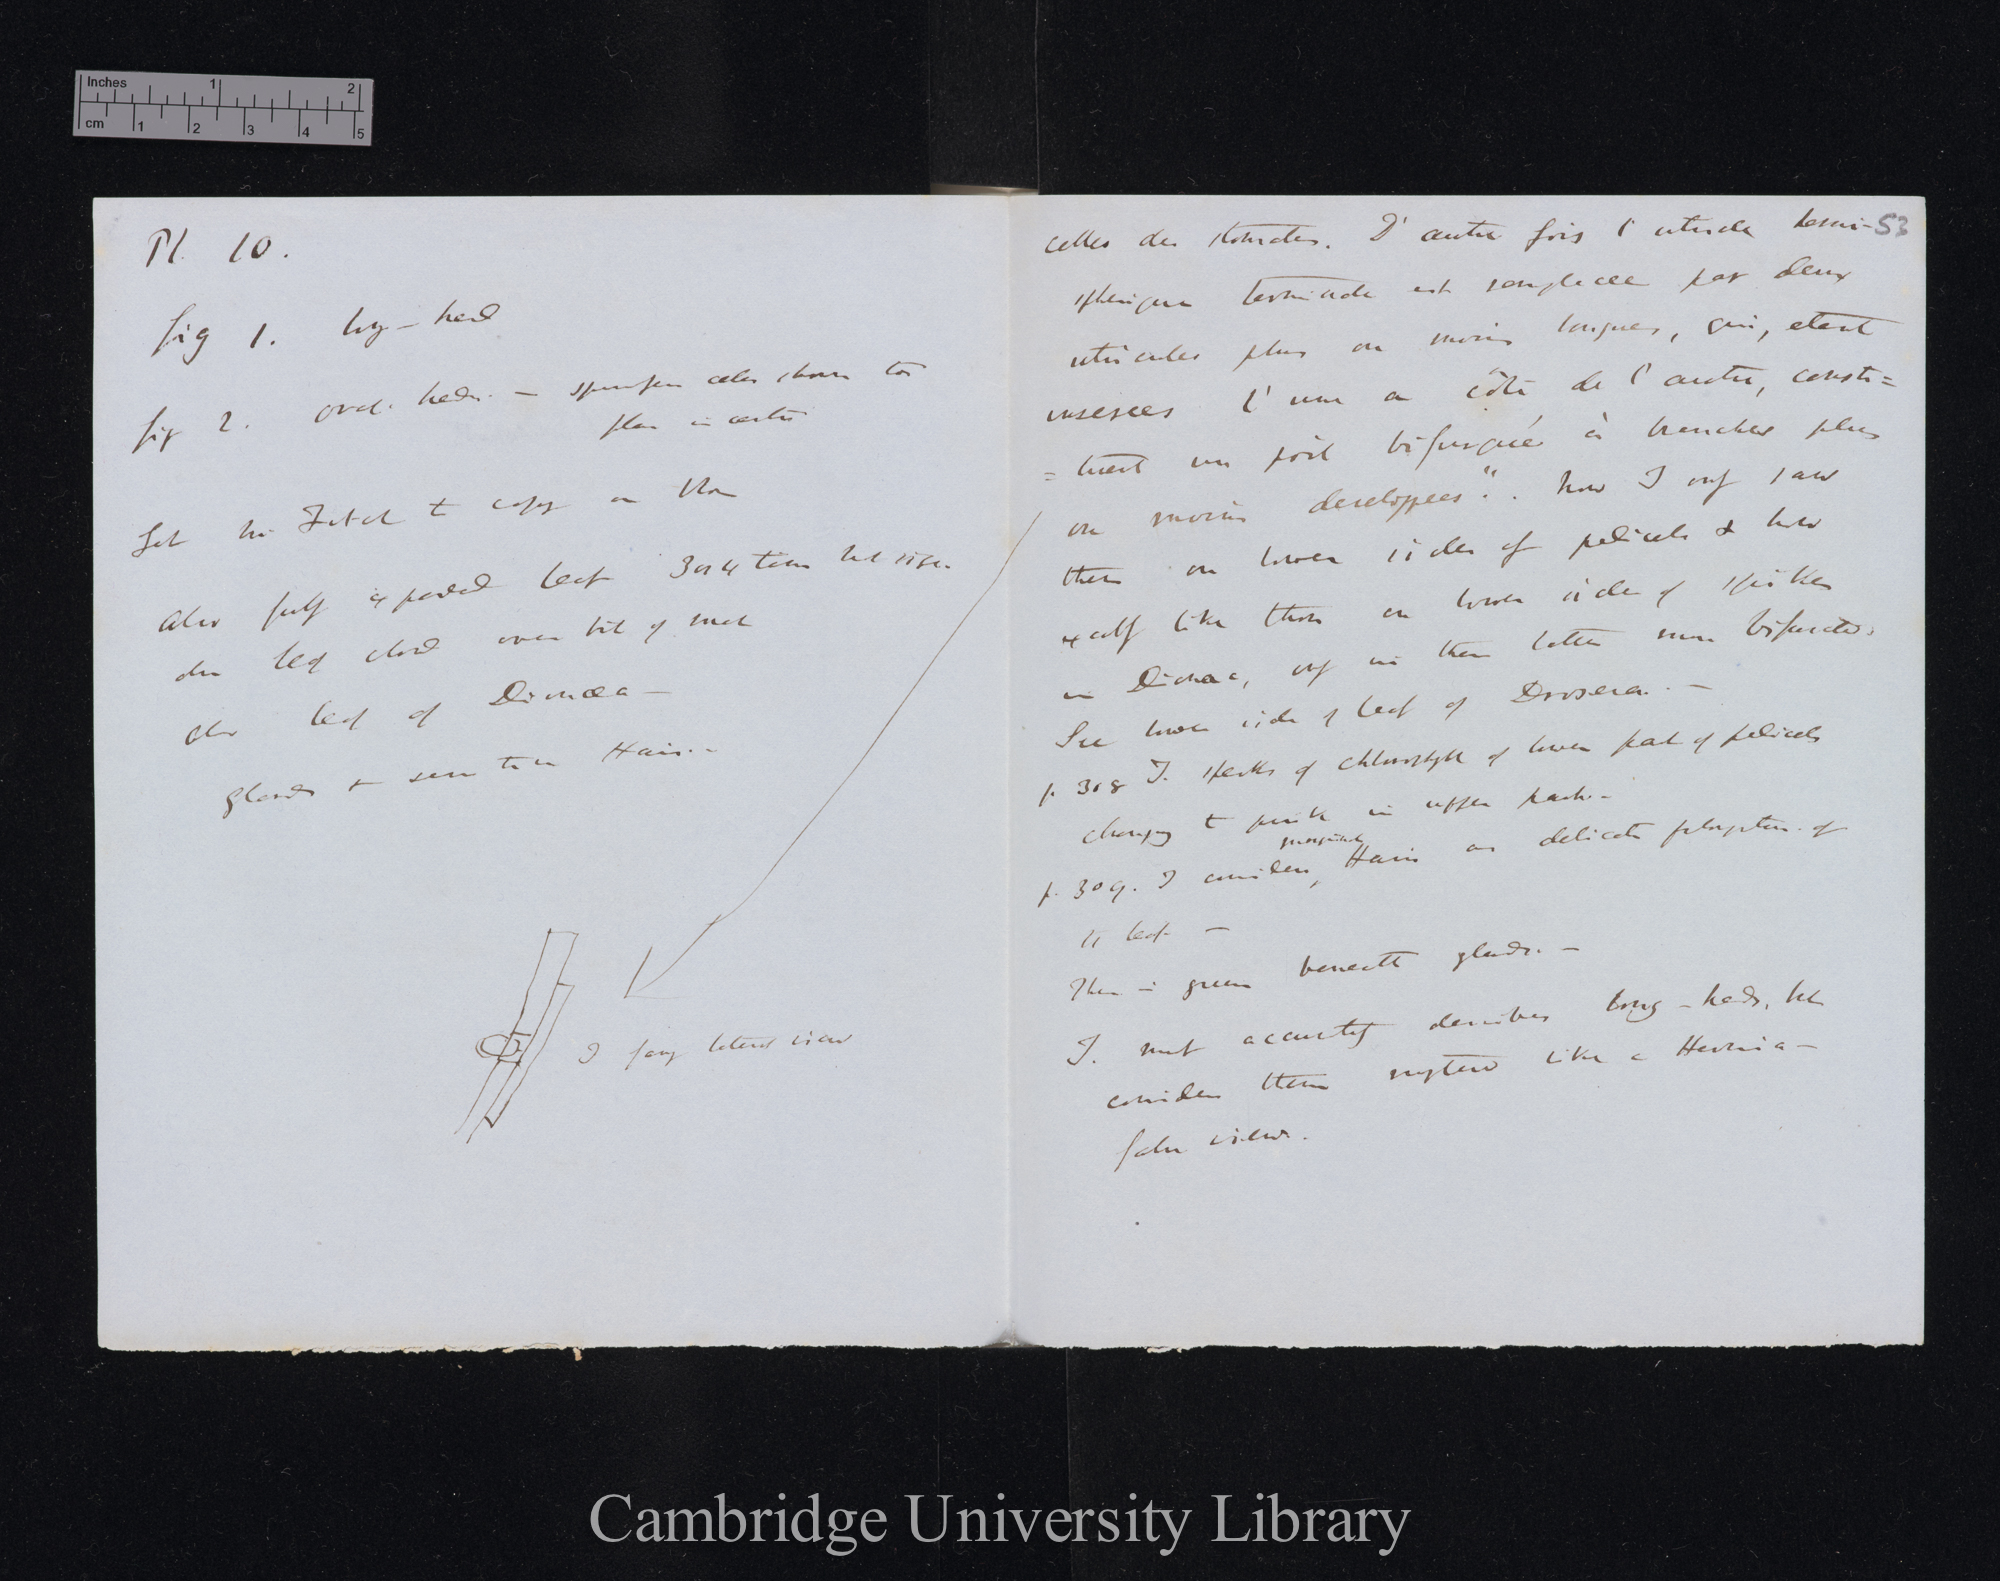 Inches 1 2
cm 1 2 3 4 5
Pl. 10.
fig 1. long-head
fig 2. oval. heads. — cells shown too
plain in centre
Get Mr Fitch to copy on Stone
Also fully expanded leaf 3 or 4 times nat size.
also leaf closed over bit of meat
also leaf of Dionæa —
glands & sensitive Hairs. —
I fancy lateral view
53
celles des stomates. D'autre fois l'utricule hemi-
spherique terminale est remplacee par deux
utricules plus ou moins longues, qui, etant
inserees l'une a côté de l'autre, consti=
=tuent un poil bifurqué à branches plus
ou moins developpees". Now I only saw
them on lower sides of pedicels & here
exactly like those on lower side of spikes
in Dionæa, only in these latter more bifurcated.
See lower side of leaf of Drosera. —
p. 308 T. specks of chlorophyll of lower part of pedicels
changing to pink in upper part. —
p. 309. T considers, marginal Hairs as delicate prolongation of
the leaf —
There is green beneath glands. —
T. most accurately describes long-heads, but
considers them ruptured like a Hernia —
false view.
Cambridge University Library